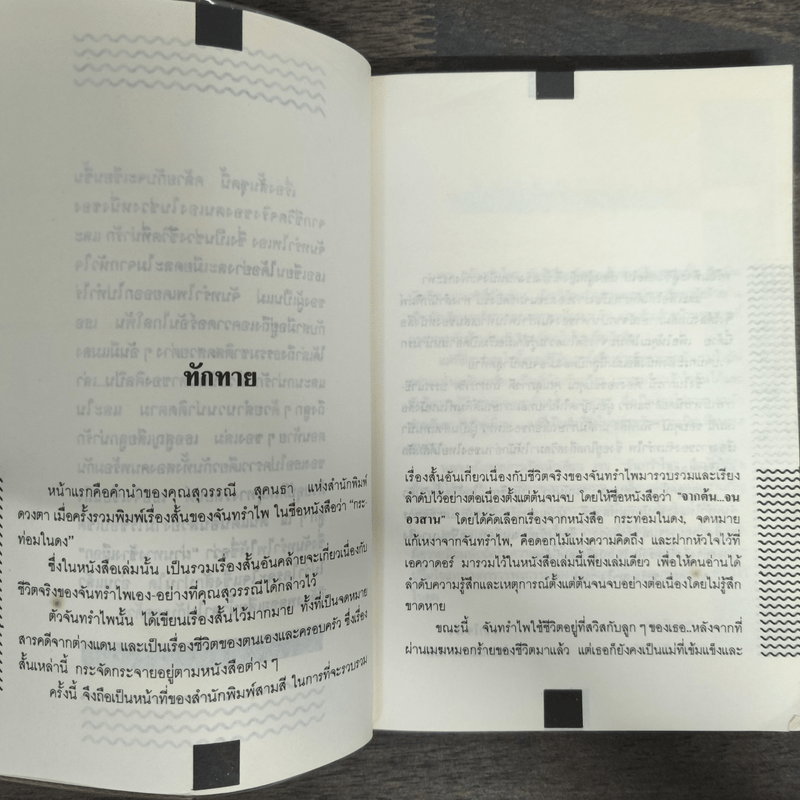 ทักทาย
หน้าแรกคือคำนำของคุณสุวรรณี สุคนธา แห่งสำนักพิมพ์
ดวงตา เมื่อครั้งรวมพิมพ์เรื่องสั้นของจันทรำไพ ในชื่อหนังสือว่า “กระ-
ท่อมในดง”
ซึ่งในหนังสือเล่มนั้น เป็นรวมเรื่องสั้นอันคล้ายจะเกี่ยวเนื่องกับ
ชีวิตจริงของจันทรำไพเอง-อย่างที่คุณสุวรรณีได้กล่าวไว้
ตัวจันทรำไพนั้น ได้เขียนเรื่องสั้นไว้มากมาย ทั้งที่เป็นจดหมาย
สารคดีจากต่างแดน และเป็นเรื่องชีวิตของตนเองและครอบครัว ซึ่งเรื่อง
สั้นเหล่านี้ กระจัดกระจายอยู่ตามหนังสือต่าง ๆ
ครั้งนี้ จึงถือเป็นหน้าที่ของสำนักพิมพ์สามสี ในการที่จะรวบรวม
เรื่องสั้นอันเกี่ยวเนื่องกับชีวิตจริงของจันทรำไพมารวบรวมและเรียง
ลำดับไว้อย่างต่อเนื่องตั้งแต่ต้นจนจบ โดยให้ชื่อหนังสือว่า “จากต้น...จน
อวสาน” โดยได้คัดเลือกเรื่องจากหนังสือ กระท่อมในดง, จดหมาย
แก้เหงาจากจันทรำไพ, คือดอกไม้แห่งความคิดถึง และฝากหัวใจไว้ที่
เอควาดอร์ มารวมไว้ในหนังสือเล่มนี้เพียงเล่มเดียว เพื่อให้คนอ่านได้
ลำดับความรู้สึกและเหตุการณ์ตั้งแต่ต้นจนจบอย่างต่อเนื่องโดยไม่รู้สึก
ขาดหาย
ขณะนี้ จันทรำไพใช้ชีวิตอยู่ที่สวิสกับลูก ๆ ของเธอ..หลังจากที่
ผ่านเมฆหมอกร้ายของชีวิตมาแล้ว แต่เธอก็ยังคงเป็นแม่ที่เข้มแข็งและ